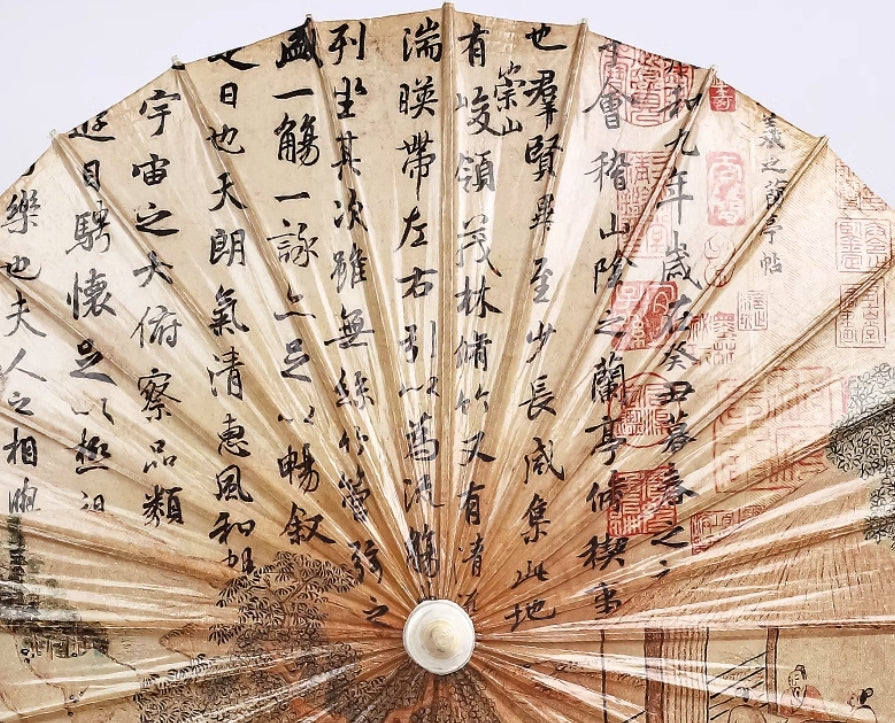 羲之蘭亭帖
和九年歲在癸丑暮春之
會稽山陰之蘭亭脩稧事
也羣賢畢至少長咸集此地
有崇山峻領茂林脩竹又有清
湍暎帶左右引以為流觴
列坐其次雖無絲竹管弦之
盛一觴一詠亦足以暢叙
日也天朗氣清惠風和
宇宙之大俯察品類
遊目騁懷足以極
樂也夫人之相與